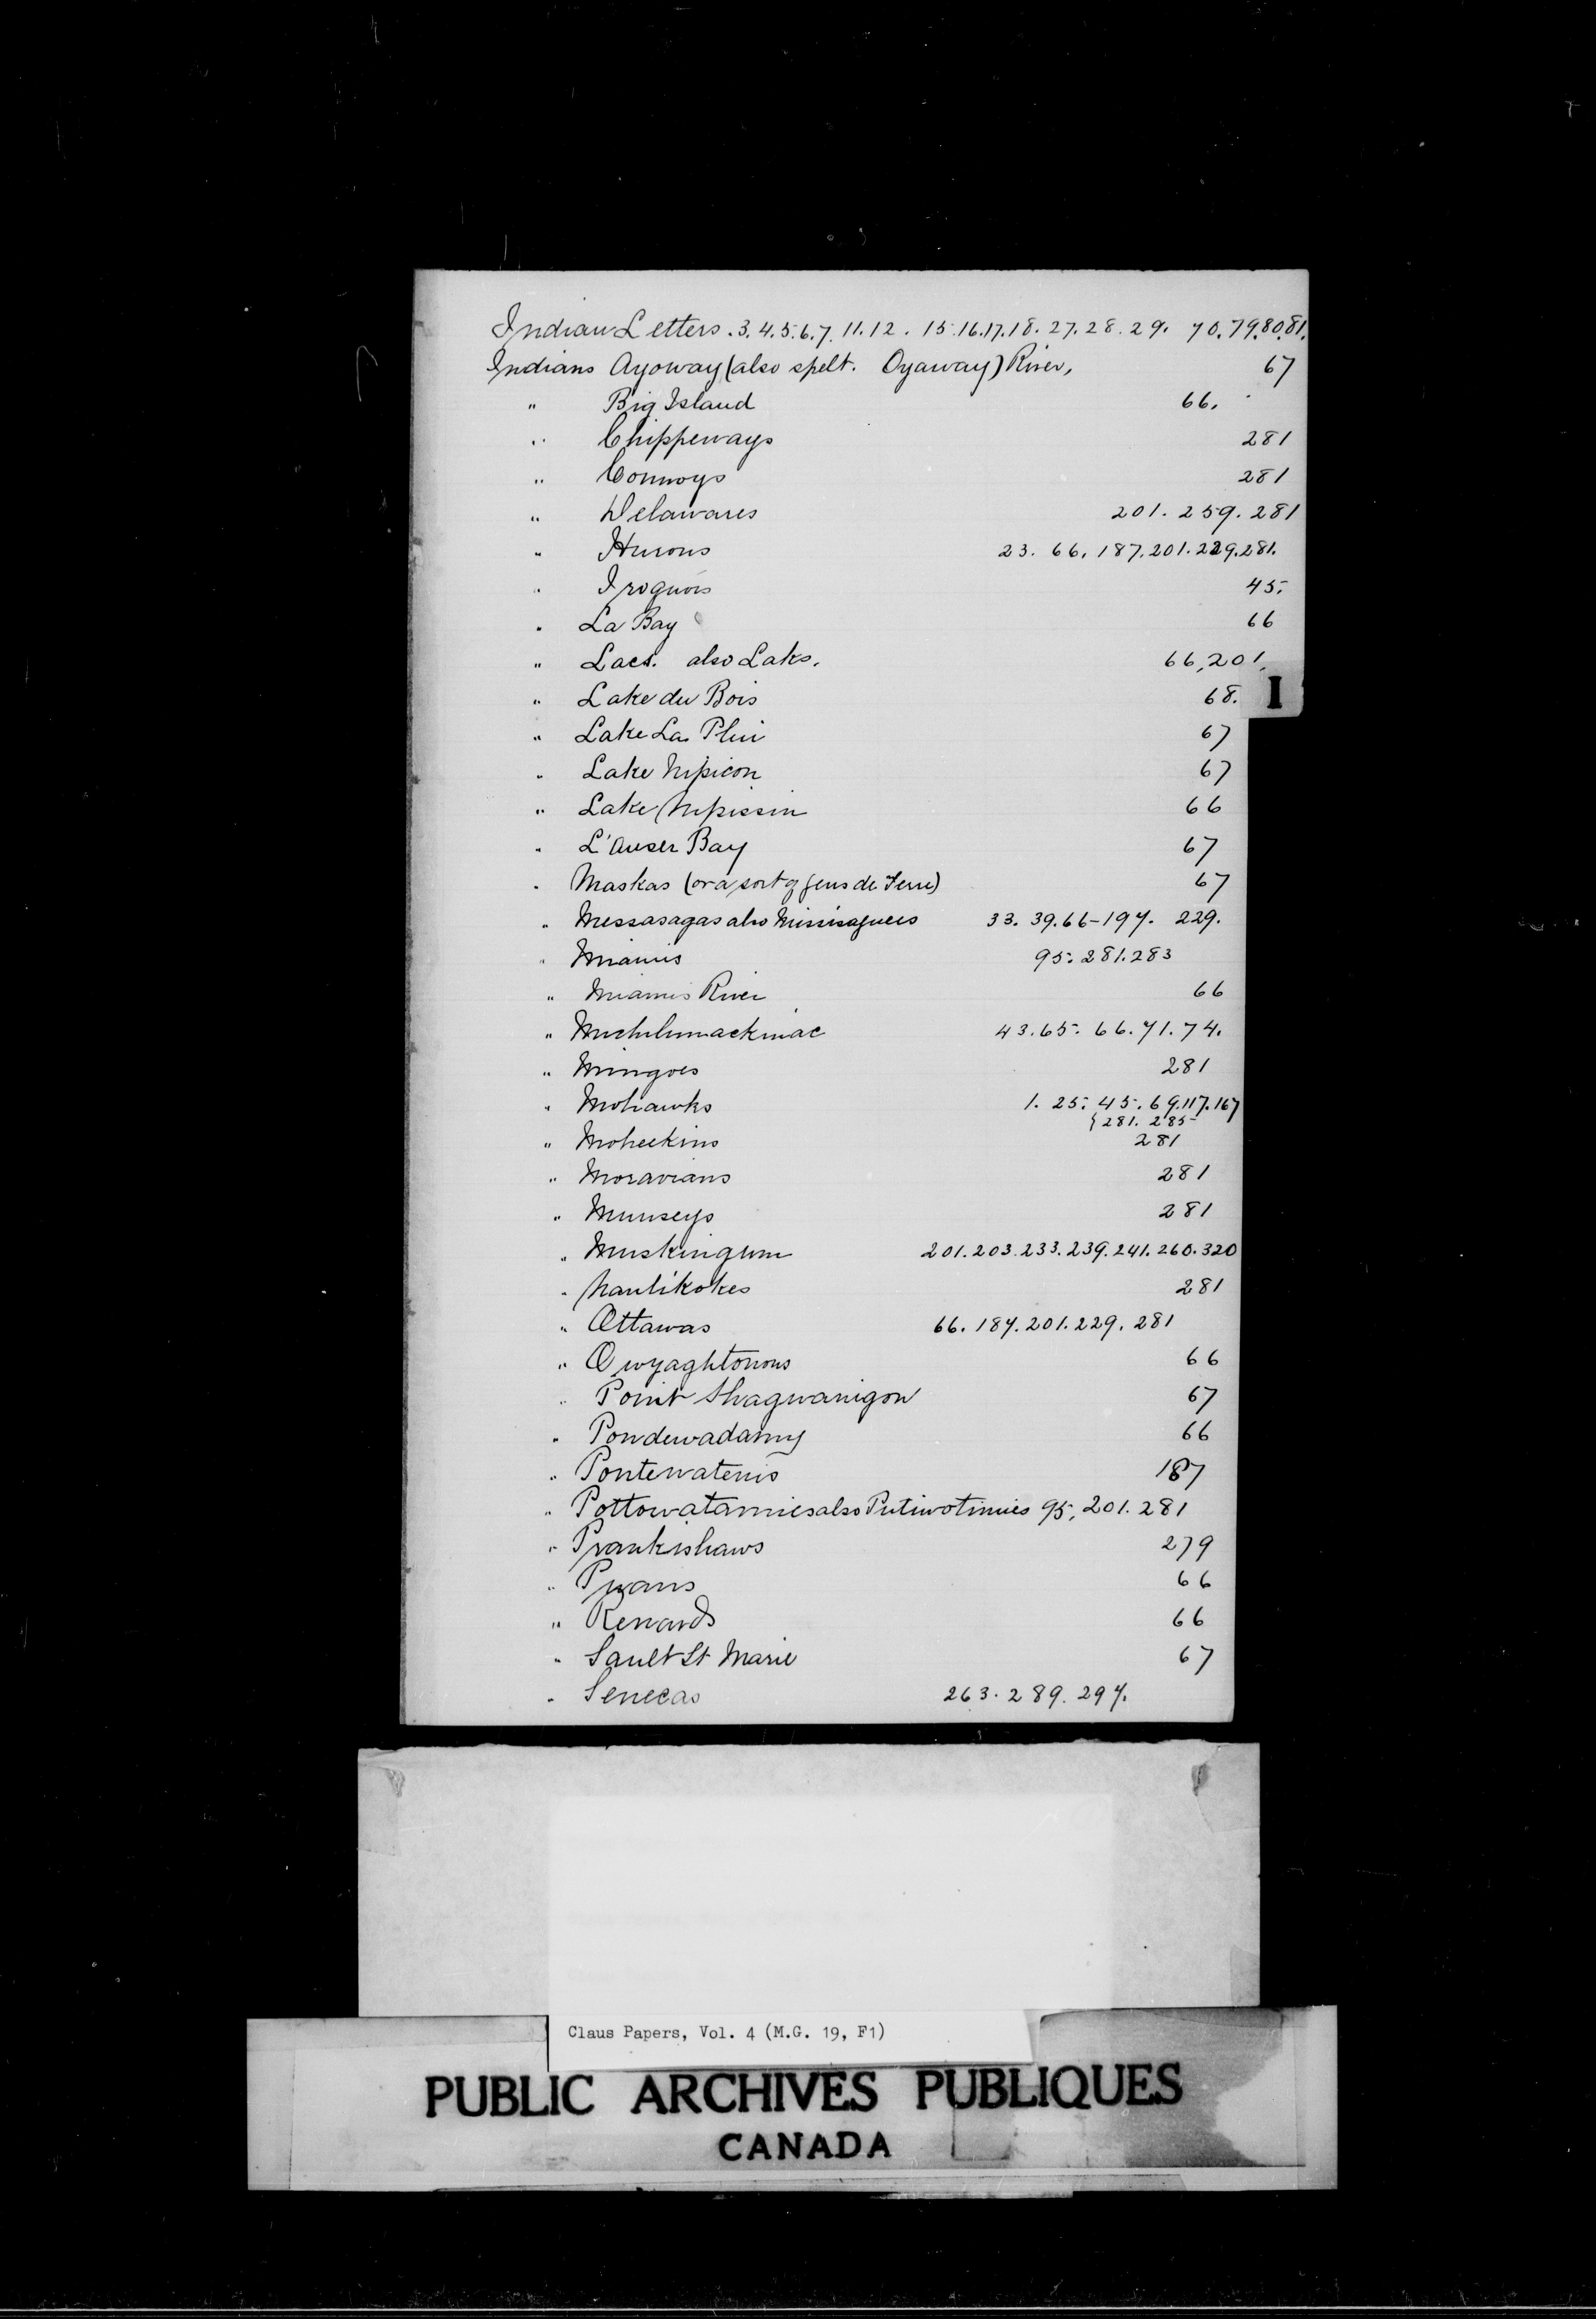 Indian Letters . 3. 4. 5. 6. 7. 11. 12 . 15. 16. 17. 18. 27. 28. 29. 70. 79. 80. 81.
Indians Ayoway (also spelt. Oyaway) River, 67
" Big Island 66.
" Chippeways 281
" Connoys 281
" Delawares 201. 259. 281
" Hurons 23. 66. 187. 201. 229. 281.
" Iroquois 45.
" La Bay 66
" Lacs. also Laks. 66, 201.
" Lake du Bois 68.
I
" Lake La Plui 67
" Lake Nipicon 67
" Lake Nipissin 66
" L'anser Bay 67
" Maskas (or a sort of Gens de Terre) 67
" Messasagas also Missisaguees 33. 39. 66 - 197. 229.
" Miamis 95. 281. 283
" Miamis River 66
" Michilimackinac 43. 65. 66. 71. 74.
" Mingoes 281
" Mohawks 1. 25. 45. 69. 117. 167
{ 281. 285
" Moheekins 281
" Moravians 281
" Munseys 281
" Muskingum 201. 203. 233. 239. 241. 260. 320
" Nantikokes 281
" Ottawas 66. 187. 201. 229. 281
" Owyaghtonons 66
" Point Shagwanigon 67
" Pondewadamy 66
" Pontewatemis 187
" Pottowatamies also Putiwotimies 95, 201. 281
" Prankishaws 279
" Puans 66
" Renards 66
" Sault St Marie 67
" Senecas 263. 289. 297.
Claus Papers, Vol. 4 (M.G. 19, F1)
PUBLIC ARCHIVES PUBLIQUES
CANADA